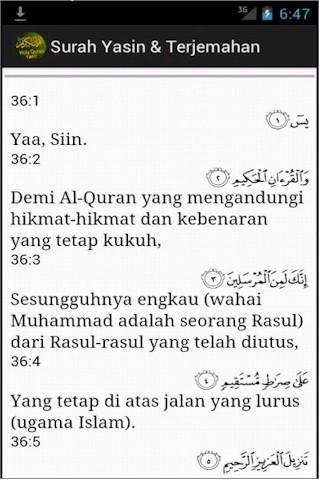 3G 6:47
Surah Yasin & Terjemahan
36:1
يسٓ ١
Yaa, Siin.
36:2
وَالْقُرْءَانِ الْحَكِيمِ ٢
Demi Al-Quran yang mengandungi
hikmat-hikmat dan kebenaran
yang tetap kukuh,
36:3
إِنَّكَ لَمِنَ الْمُرْسَلِينَ ٣
Sesungguhnya engkau (wahai
Muhammad adalah seorang Rasul)
dari Rasul-rasul yang telah diutus,
36:4
عَلَىٰ صِرَاطٍ مُّسْتَقِيمٍ ٤
Yang tetap di atas jalan yang lurus
(ugama Islam).
36:5
تَنزِيلَ الْعَزِيزِ الرَّحِيمِ ٥